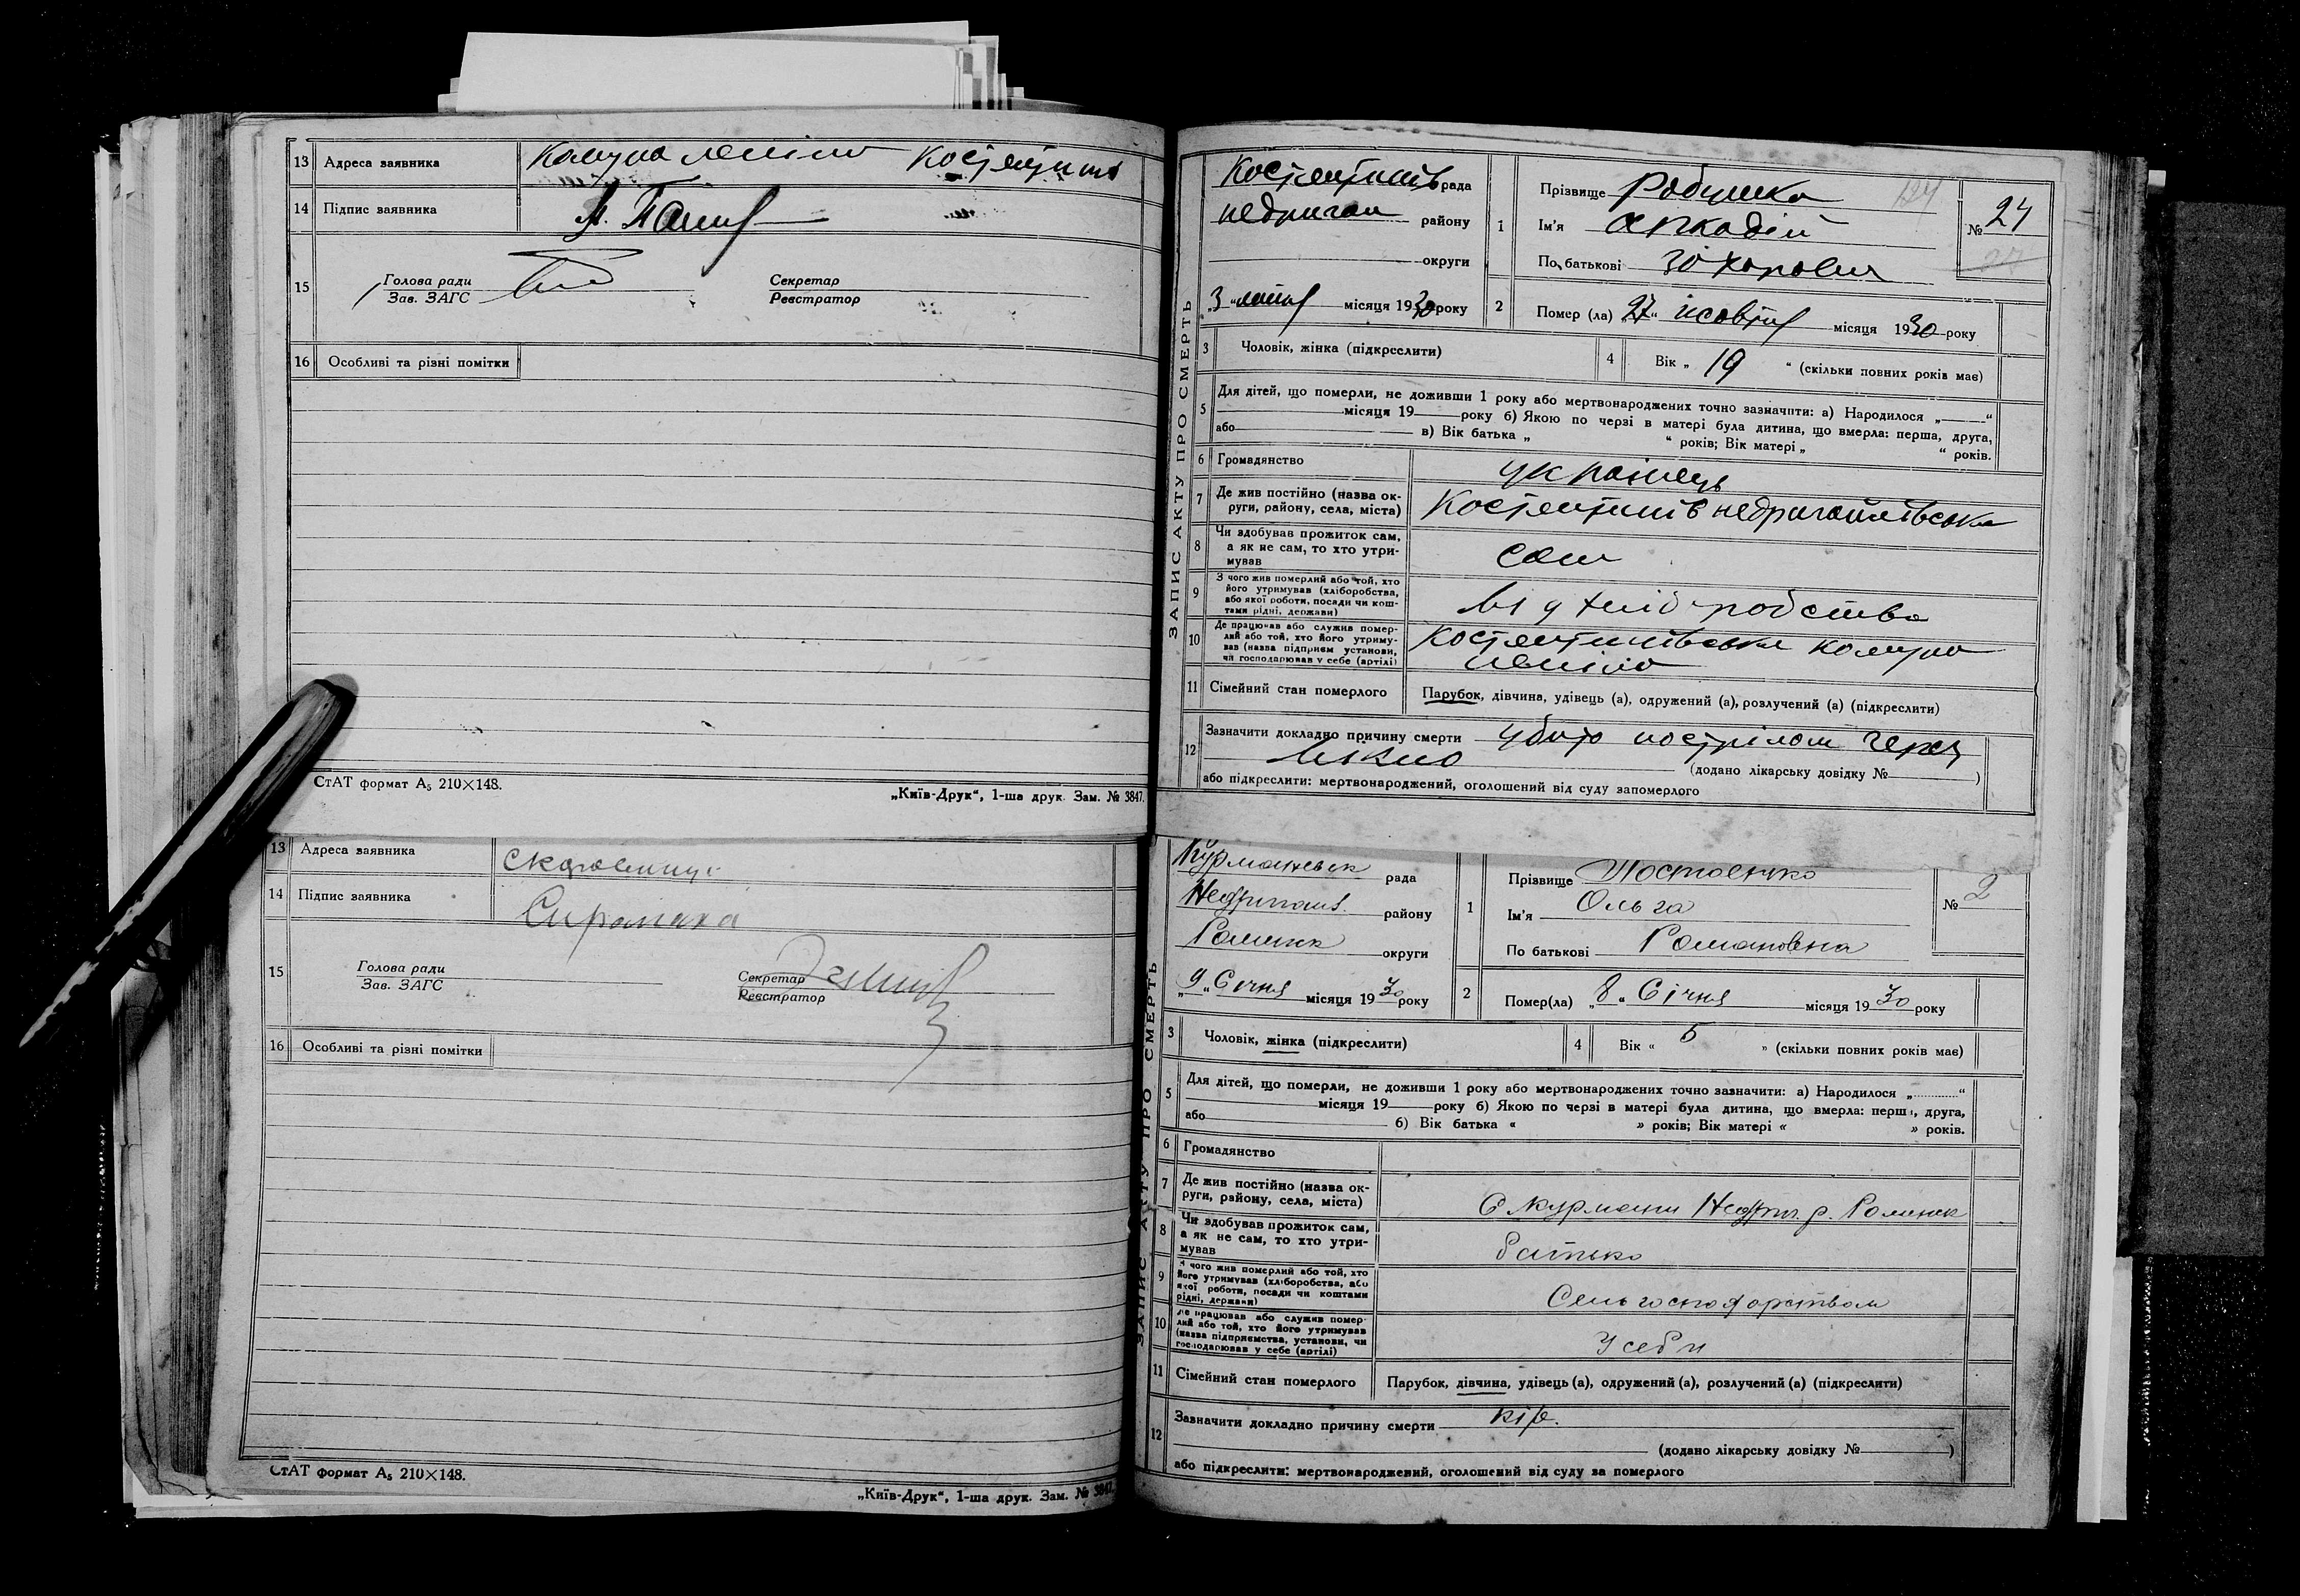 13 Адреса заявника Комуна леніна Костянтинів
14 Підпис заявника
15 Голова ради Секретар
Зав. ЗАГС Реєстратор
16 Особливі та різні помітки
СтАТ формат А₅ 210×148.
„Київ-Друк“, 1-ша друк. Зам. № 3847.
ЗАПИС АКТУ ПРО СМЕРТЬ
Костянтинів рада
недригай району
округи
„3“ місяця 1930 року
1 Прізвище Робушка 124
Ім'я Аркадій
По батькові Захарович
№ 24
2 Помер (ла) „27“ жовтня місяця 1930 року
3 Чоловік, жінка (підкреслити) 4 Вік „ 19 “ (скільки повних років має)
5 Для дітей, що померли, не доживши 1 року або мертвонароджених точно зазначити: а) Народилося „ “
місяця 19 року б) Якою по черзі в матері була дитина, що вмерла: перша, друга,
або в) Вік батька „ “ років; Вік матері „ “ років.
6 Громадянство українець
7 Де жив постійно (назва ок-
руги, району, села, міста) Костянтинів недригайлівська
8 Чи здобував прожиток сам,
а як не сам, то хто утри-
мував сам
9 З чого жив померлий або той, хто
його утримував (хліборобства,
або якої роботи, посади чи кош-
тами рідні, держави) від хліборобства
10 Де працював або служив помер-
лий або той, хто його утриму-
вав (назва підприєм установи,
чи господарював у себе (артілі) Костянтинівська комуна
леніна
11 Сімейний стан померлого Парубок, дівчина, удівець (а), одружений (а), розлучений (а) (підкреслити)
12 Зазначити докладно причину смерти убито пострілом через
вікно (додано лікарську довідку № )
або підкреслити: мертвонароджений, оголошений від суду запомерлого
13 Адреса заявника
14 Підпис заявника
15 Голова ради Секретар
Зав. ЗАГС Реєстратор
16 Особливі та різні помітки
СтАТ формат А₅ 210×148.
„Київ-Друк“, 1-ша друк. Зам. № 3847.
ЗАПИС АКТУ ПРО СМЕРТЬ
рада
Недригайл. району
Роменск округи
„9“ Січня місяця 1930 року
1 Прізвище Костоенко
Ім'я Ольга
По батькові Романовна
№ 2
2 Помер(ла) „8“ Січня місяця 1930 року
3 Чоловік, жінка (підкреслити) 4 Вік « 5 » (скільки повних років має)
5 Для дітей, що померли, не доживши 1 року або мертвонароджених точно зазначити: а) Народилося „ “
місяця 19 року б) Якою по черзі в матері була дитина, що вмерла: перша, друга,
або б) Вік батька « » років; Вік матері « » років.
6 Громадянство
7 Де жив постійно (назва ок-
руги, району, села, міста) С Курмани Недриг. р. Роменск
8 Чи здобував прожиток сам,
а як не сам, то хто утри-
мував батько
9 З чого жив померлий або той, хто
його утримував (хліборобства, або
якої роботи, посади чи коштами
рідні, держави) Сель господарством
10 Де працював або служив помер-
лий або той, хто його утримував
(назва підприємства, установи, чи
господарював у себе (артілі) У себя
11 Сімейний стан померлого Парубок, дівчина, удівець (а), одружений (а), розлучений (а) (підкреслити)
12 Зазначити докладно причину смерти кір.
(додано лікарську довідку № )
або підкреслити: мертвонароджений, оголошений від суду за померлого